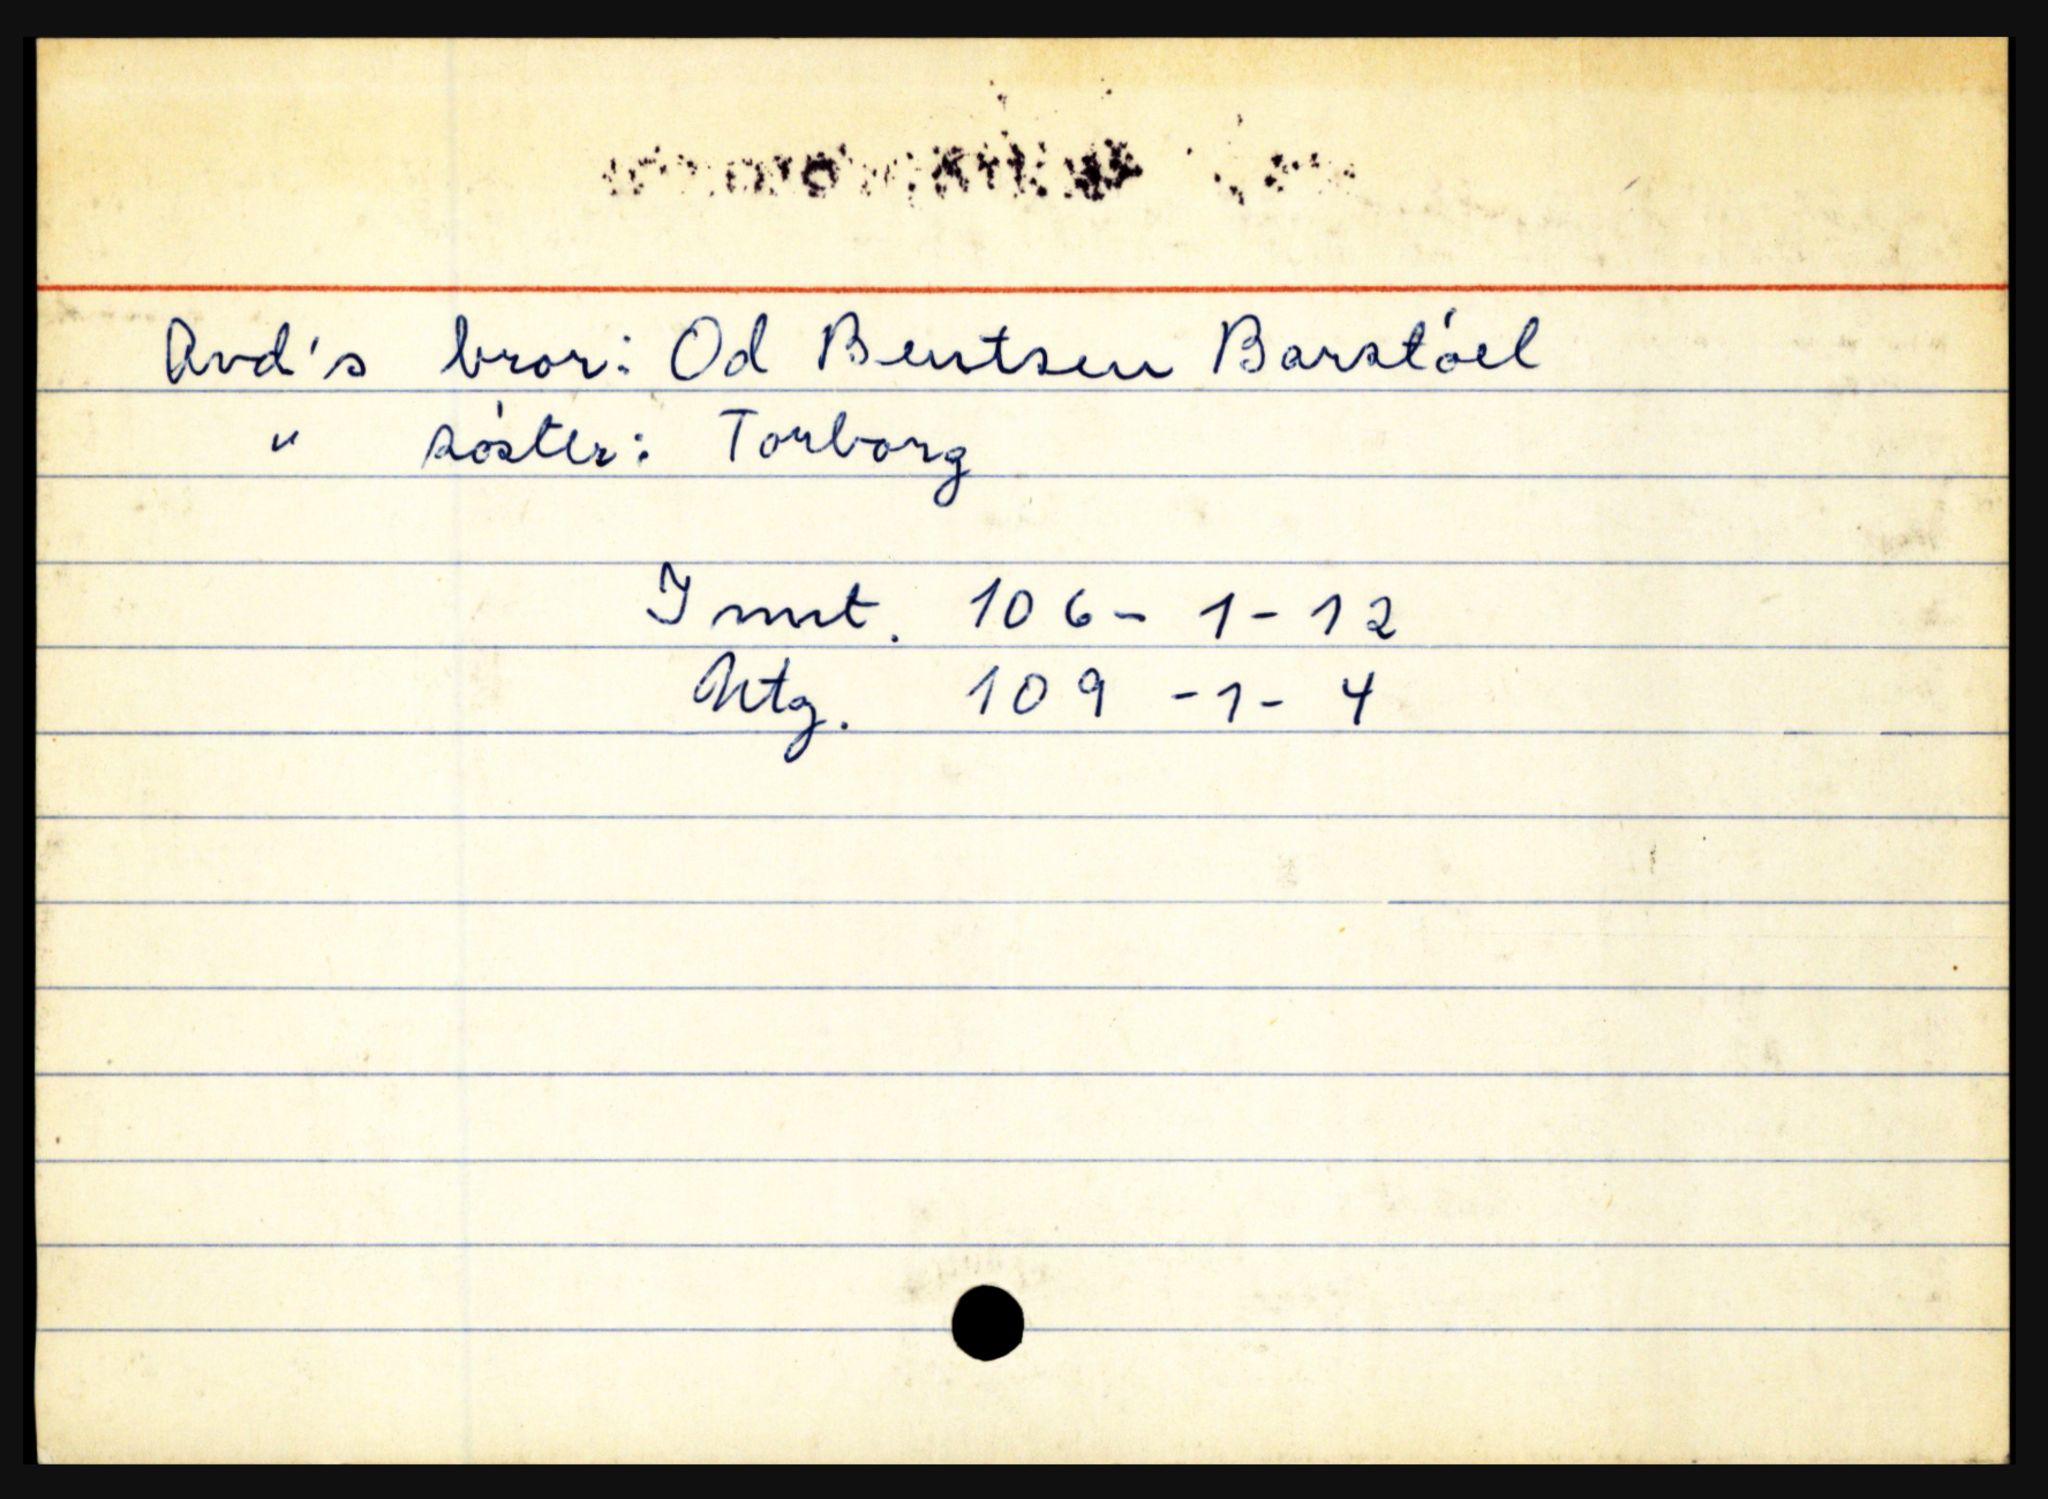 Avd's bror: Od Bentsen Barstóel
" sóster: Torborg
Innt. 106 - 1 - 12
Utg. 109 - 1 - 4